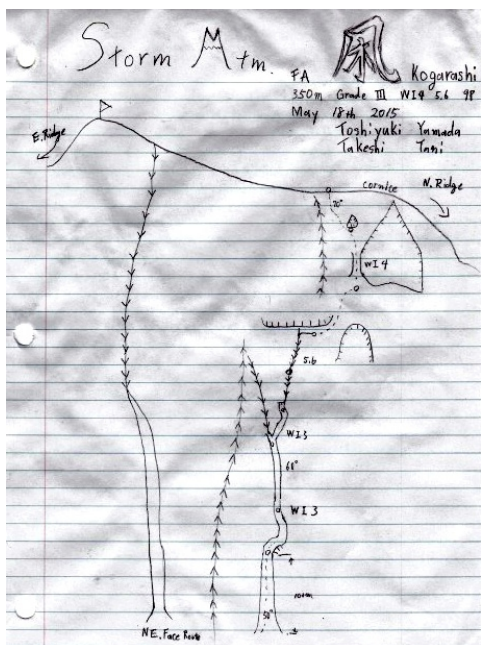 Storm Mtm.
FA 凩 Kogarashi
350m Grade III WI4 5.6 9P
May 18th 2015
Toshiyuki Yamada
Takeshi Tani
E.Ridge
cornice
N.Ridge
70°
WI4
5.6
WI3
68°
WI3
100m
50°
NE.Face Route